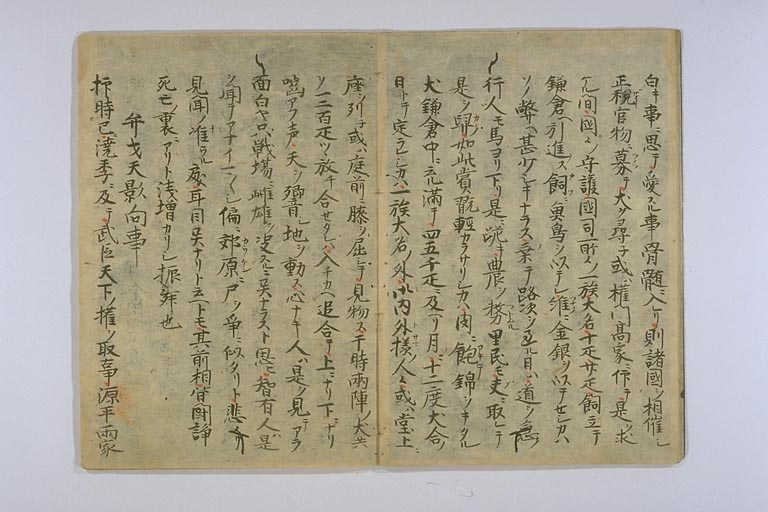 白キ事ニ思テ愛スル事骨髄ニ入レリ則諸國ヘ相催シ
正税官物ニ募テ犬ヲ尋子或ハ權門髙家ニ仰テ是ヲ求
ケル間國々ノ守護國司所々ノ一族大名十疋廿疋飼立テ
鎌倉ヘ引進ス飼ニ魚鳥ヲ以テシ維ニ金銀ヲ以テセシカハ
ソノ弊ヘ甚少ナキナラス輿ニ乗テ路次ヲ過ル日ハ道ヲ急
行人モ馬ヨリ下リ是ニ跪キ農ヲ務ル里民モ夫ニ取レテ
是ヲ舁如此賞翫輕カラサリシカハ肉ニ飽錦ヲキタル
犬鎌倉中ニ充滿テ四五千疋ニ及ヘリ月ニ十二度犬合ノ
日トテ定ラレシカハ一族大名ノ外御内外様ノ人々或ハ堂上ニ
座ヲツラ子或ハ庭前ニ膝ヲ屈シテ見物ス于時兩陣ノ犬共
ヲ一二百疋ツヽ放チ合セタレハ入チカヘ追合テ上ニナリ下ニナリ
噛アフ声天ヲ響シ地ヲ動ス心ナキ人ハ是ヲ見テアラ
面白ヤ只戦場ニ雌雄ヲ決スルニ異ナラスト思ヒ智有人ハ是
ヲ聞テアナイマ〱シ偏ニ郊原ニ尸ヲ争ニ似タリト悲メリ
見聞ノ准フル処耳目異ナリト云ヘトモ其前相皆闘諍
死亡ノ裏ニアリト浅増カリシ振舞也
弁才天影向事
抑時已ニ澆季ニ及テ武臣天下ノ權ヲ取事源平兩家